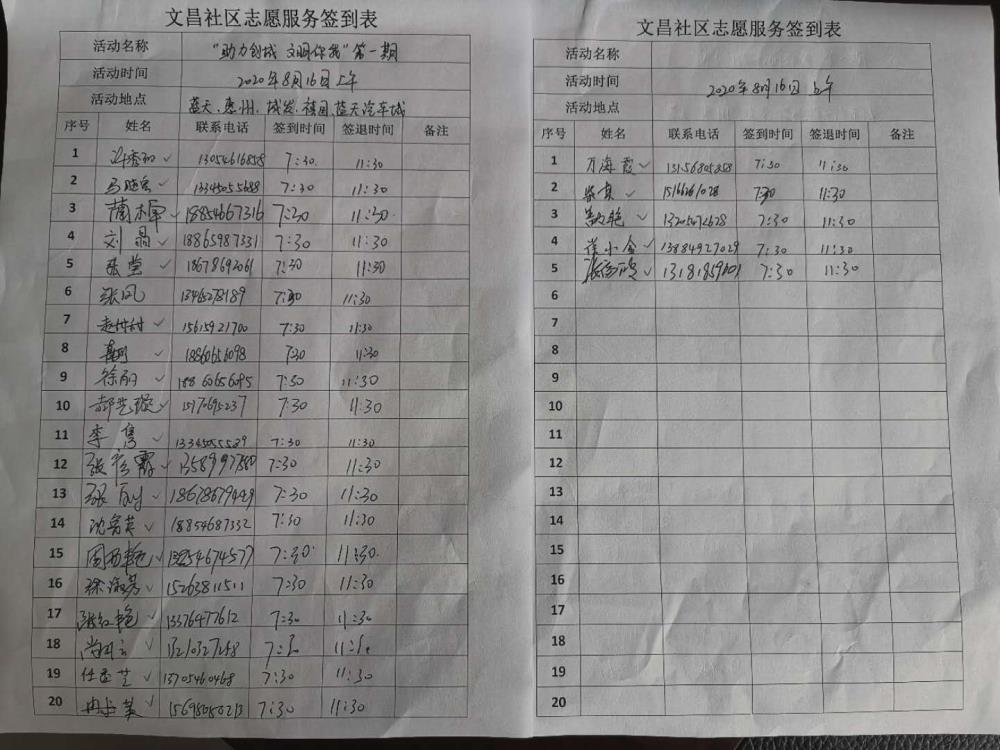 文昌社区志愿服务签到表
活动名称 "助力创城 文明你我"第一期
活动时间 2020年8月16日上午
活动地点 蓝天、惠州、城发、锦园、蓝天汽车城
序号 姓名 联系电话 签到时间 签退时间 备注
1 13054616858 7:30 11:30
2 马晓宾 13345055688 7:30 11:30
3 18854667316 7:30 11:30
4 刘晶 18865987331 7:30 11:30
5 张莹 18678692061 7:30 11:30
6 张凤 7:30 11:30
7 赵甜甜 15615921700 7:30 11:30
8 18860656098 7:30 11:30
9 徐丽 18860656095 7:30 11:30
10 郝艺璇 7:30 11:30
11 李隽 13345055589 7:30 11:30
12 7:30 11:30
13 18678679449 7:30 11:30
14 沈秀英 18854687332 7:30 11:30
15 周西艳 7:30 11:30
16 徐淑芳 15263811511 7:30 11:30
17 张红艳 13376477612 7:30 11:30
18 13210327258
19 任孟芝 13705460468 7:30 11:30
20 冉占美 15698050213 7:30 11:30
文昌社区志愿服务签到表
活动名称
活动时间 2020年8月16日上午
活动地点
序号 姓名 联系电话 签到时间 签退时间 备注
1 万海霞 13156805858 7:30 11:30
2 7:30 11:30
3 13205472628 7:30 11:30
4 崔小金 13884927029 7:30 11:30
5 7:30 11:30
6
7
8
9
10
11
12
13
14
15
16
17
18
19
20